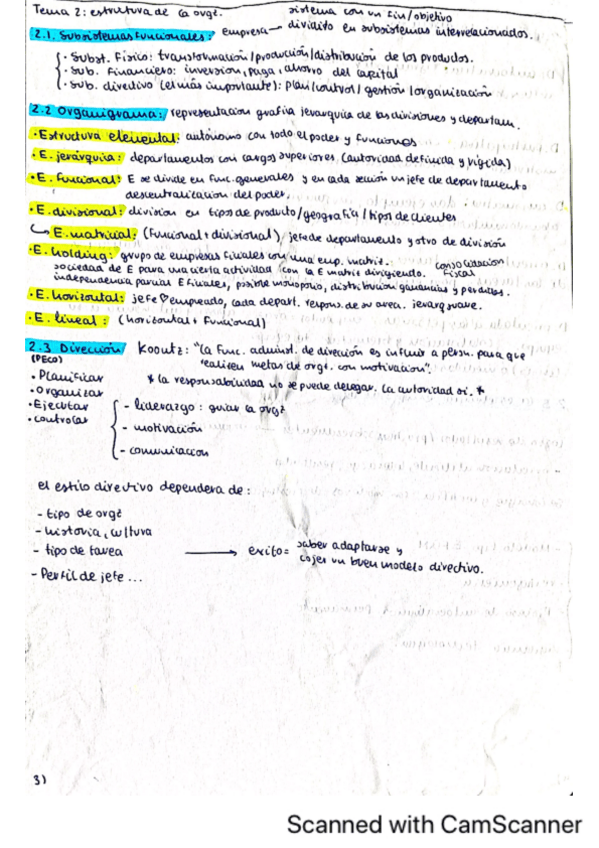 Tema 2: estructura de la orgz.
sistema con un fin/objetivo
2.1. Subsistemas funcionales: empresa — dividido en subsistemas interrelacionados.
· Subst. Físico: transformación/producción/distribución de los productos.
· Sub. Financiero: inversion, paga, ahorro del capital
· Sub. directivo (el más importante): plan/control/gestión/organización
2.2 Organigrama: representación grafica jerarquica de las divisiones y departam.
· Estructura elemental: autónomo con todo el poder y funciones
· E. jerárquia: departamentos con cargos superiores (autoridad definida y rígida)
· E. Funcional: E se divide en func. generales y en cada sección un jefe de departamento
descentralización del poder.
· E. divisional: division en tipos de producto/geografia/tipos de clientes
↳ E. matricial: (funcional + divisional) jefe de departamento y otro de división
· E. holding: grupo de empresas filiales con una emp. matriz.
sociedad de E para una cierta actividad con la E matriz dirigiendo. consolidación fiscal
independencia parcial E filiales, posible monopolio, distribución ganancias y perdidas.
· E. horizontal: jefe ♡ empleado, cada depart. respons. de su area. jerarq suave.
· E. lineal: (horizontal + funcional)
2.3 Dirección Koontz: "la func. administ. de dirección es influir a person. para que
(PECO) realicen metas de orgz. con motivación".
· Planificar * la responsabilidad no se puede delegar. La autoridad sí. *
· Organizar
· Ejecutar - liderazgo: guiar la orgz
· controlar - motivación
- comunicacion
el estilo directivo dependera de:
- tipo de orgz
- historia, cultura
- tipo de tarea → exito = saber adaptarse y
cojer un buen modelo directivo.
- Perfil de jefe ...
3)
Scanned with CamScanner